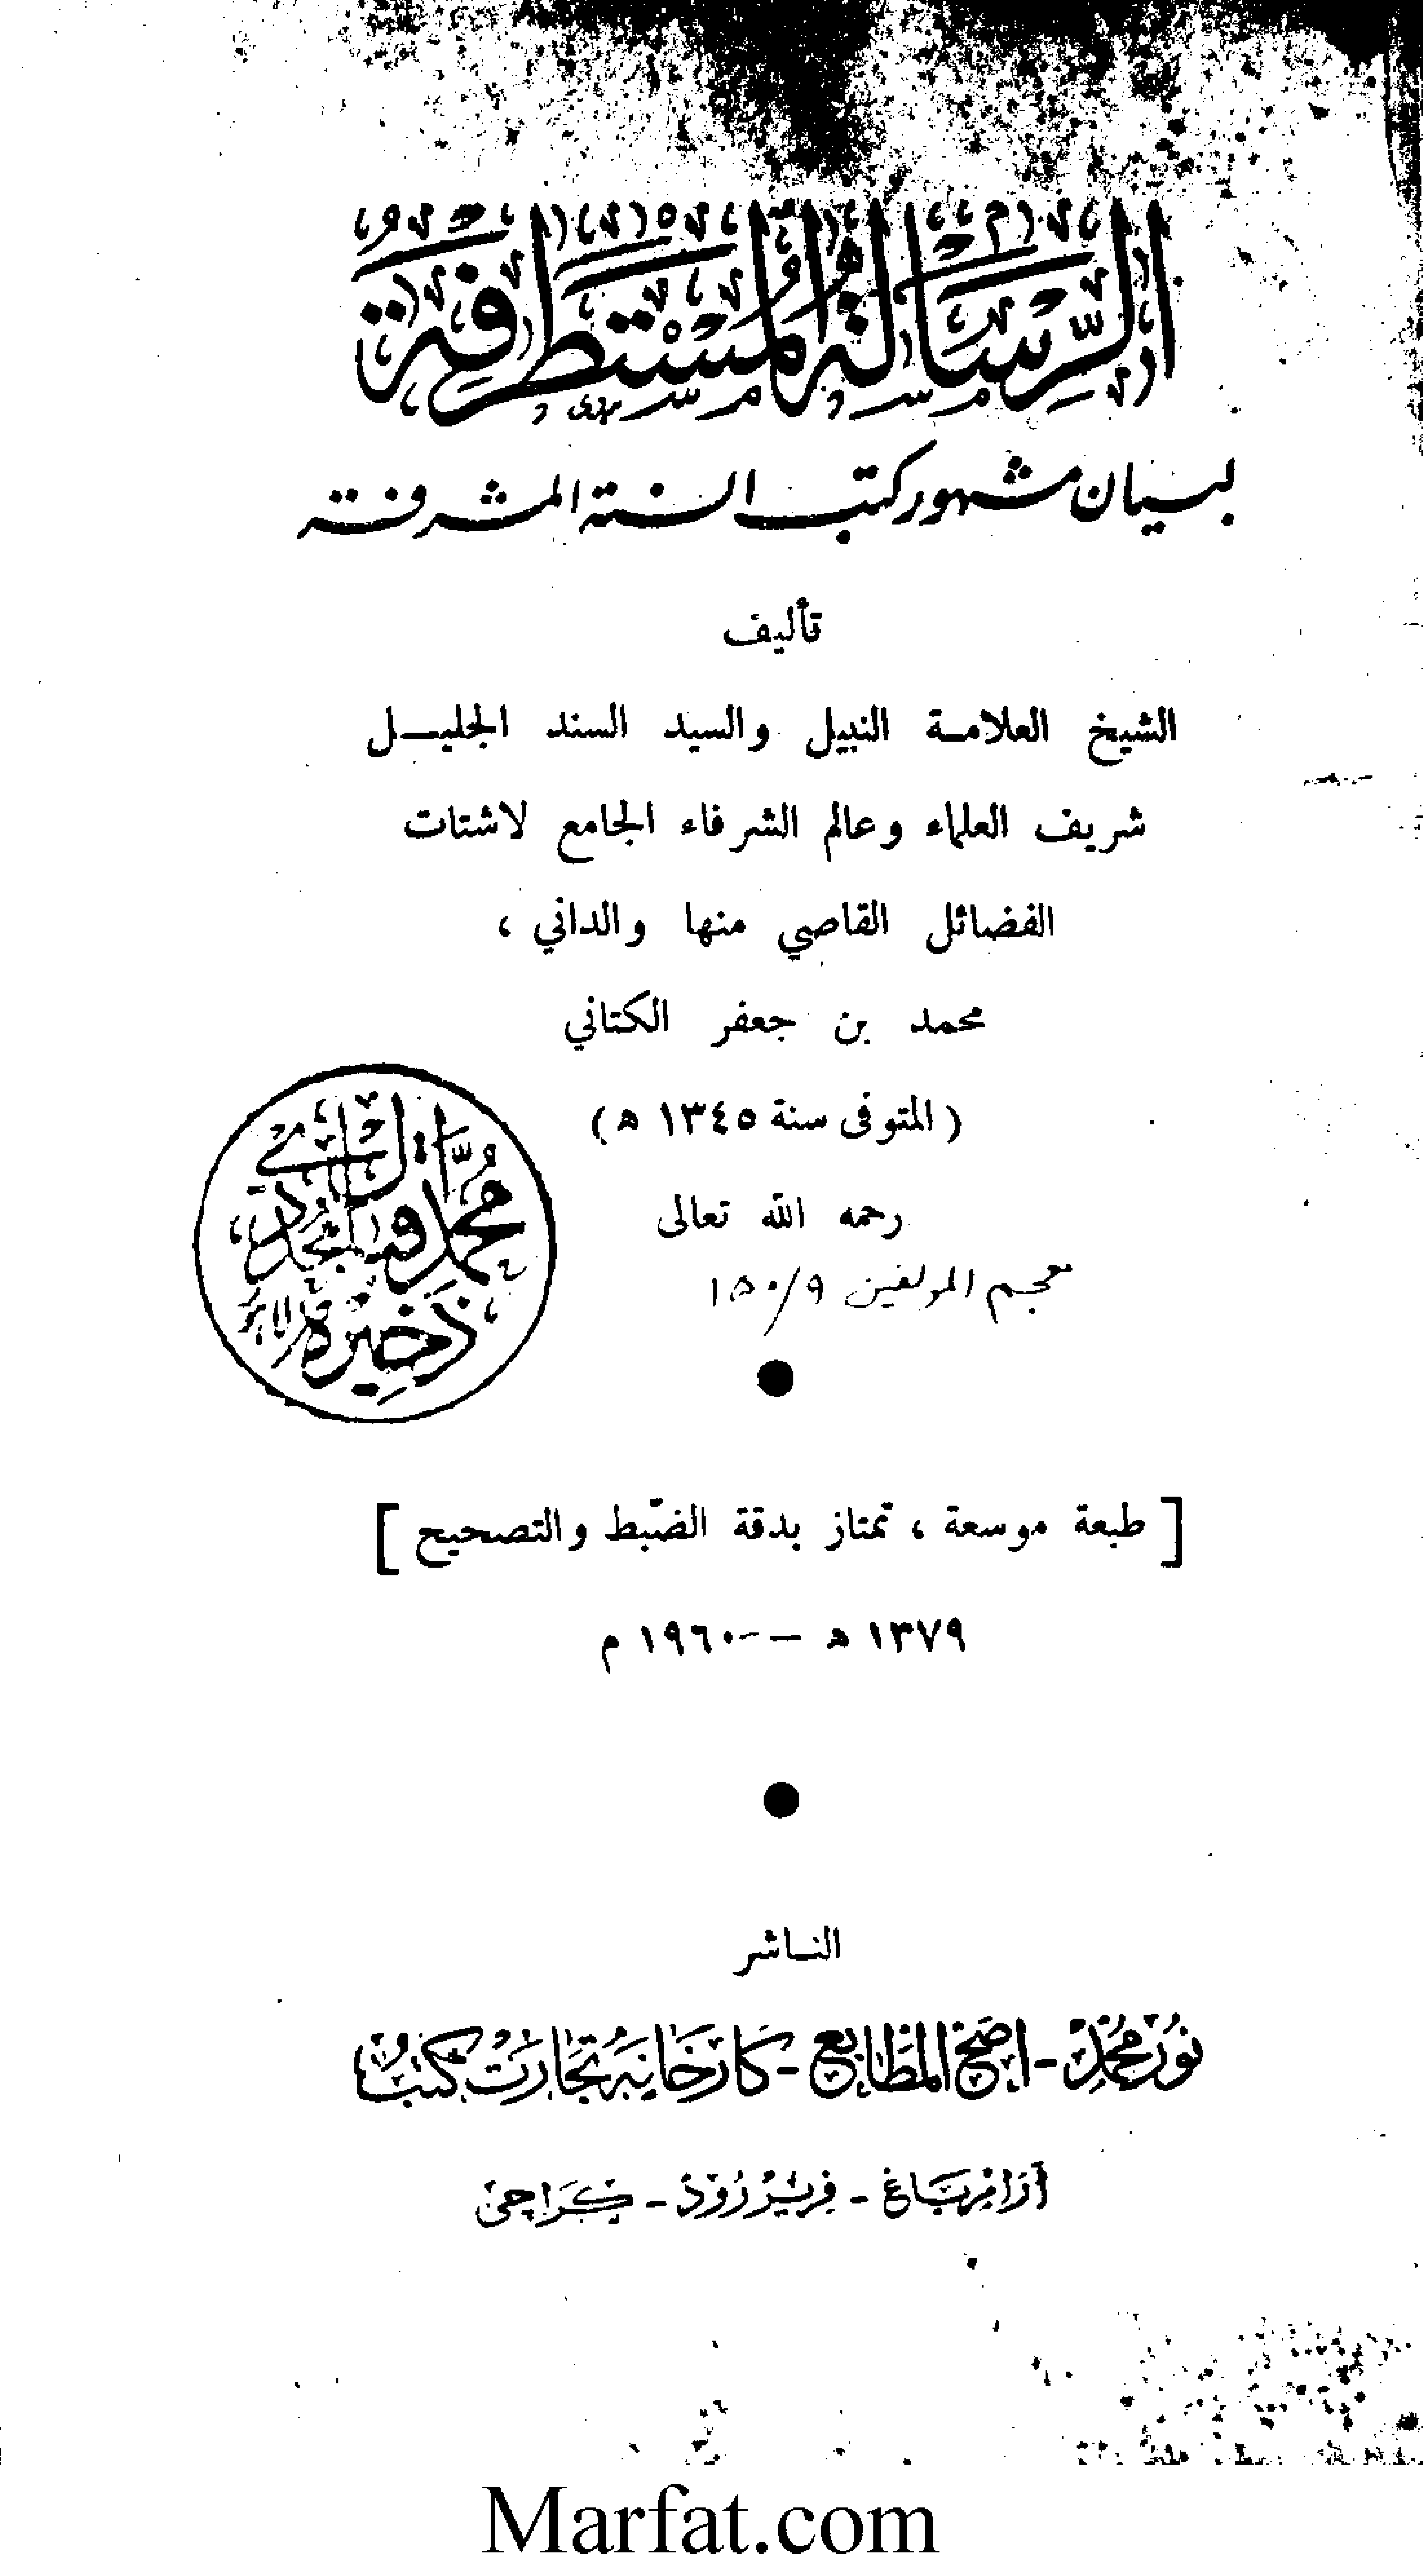 الرِّسَالَةُ المُسْتَطْرَفَة
لبيان مشهور كتب السنة المشرفة
تأليف
الشيخ العلامة النبيل والسيد السند الجليــل
شريف العلماء وعالم الشرفاء الجامع لاشتات
الفضائل القاصي منها والداني ،
محمد بن جعفر الكتاني
( المتوفى سنة ١٣٤٥ ه )
رحمه الله تعالى
معجم المؤلفين ١٥٠/٩
محمد اقبال مجددی
ذخیرہ
[ طبعة موسعة ، تمتاز بدقة الضّبط والتصحيح ]
١٣٧٩ ه — ١٩٦٠ م
الناشر
نور محمد - اصح المطابع - كارخانه تجارت كتب
آرام باغ - فرير رود - كراچی
Marfat.com